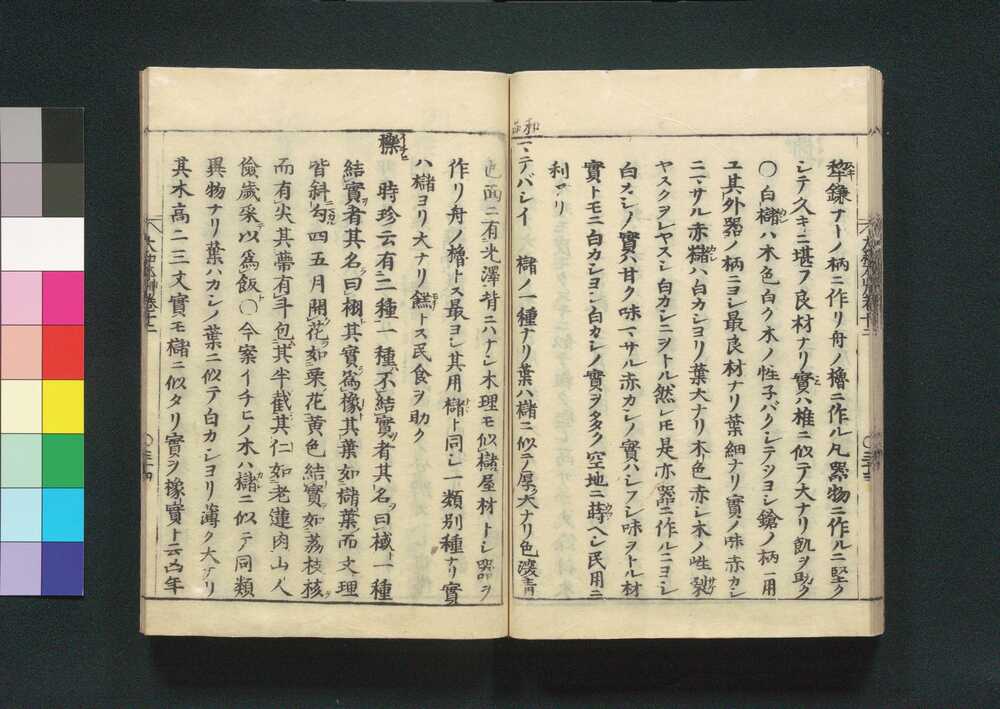 犂鎌ナトノ柄ニ作リ舟ノ櫓ニ作ル凡器物ニ作ルニ堅ク
シテ久キニ堪フ良材ナリ實ハ椎ニ似テ大ナリ飢ヲ助ク
〇白櫧ハ木色白ク木ノ性子バクシテツヨシ鎗ノ柄ニ用
ユ其外器ノ柄ニヨシ最良材ナリ葉細ナリ實ノ味赤カシ
ニマサル赤櫧ハ白カシヨリ葉大ナリ木色赤シ木ノ性裂
ヤスクヲレヤスシ白カシニヲトル然レ𪜈是亦器ニ作ルニヨシ
白カシノ實ハ甘ク味マサル赤カシノ實ハシフシ味ヲトル材
實トモニ白カシヨシ白カシノ實ヲ多ク空地ニ蒔ヘシ民用ニ
利アリ
和品
マテバシイ 櫧ノ一種ナリ葉ハ櫧ニ似テ厚ク大ナリ色深青
色面ニ有光澤背ニハナシ木理モ似櫧屋材トシ器ヲ
作リ舟ノ櫓トス最ヨシ其用櫧ト同シ一類別種ナリ實
ハ櫧ヨリ大ナリ餻トス民食ヲ助ク
橡 イチヒ 時珍云有二種一種不結實者其名曰棫一種
結實者其名曰栩其實爲橡其葉如櫧葉而文理
皆斜勾四五月開花如栗花黄色結實如荔枝核
而有尖其蔕有斗包其半截其仁如老蓮肉山人
儉歲采以爲飯〇今案イチヒノ木ハ櫧ニ似テ同類
異物ナリ葉ハカシノ葉ニ似テ白カシヨリ薄ク大ナリ
其木高二三丈實モ櫧ニ似タリ實ヲ橡實ト云凶年